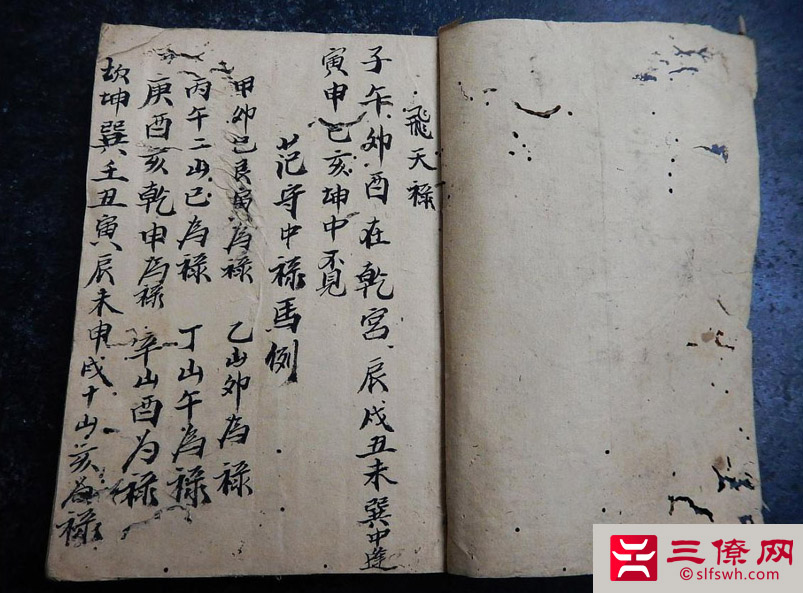 飛天禄
子午卯酉在乾宫辰戌丑未巽中逢
寅申巳亥坤中不見
范守中禄馬例
甲卯巳艮寅為禄 乙山卯為禄
丙午二山巳為禄 丁山午為禄
庚酉亥乾申為禄 辛山酉为禄
坎坤巽壬丑寅辰未申戌十山亥為禄
三僚网
slfswh.com